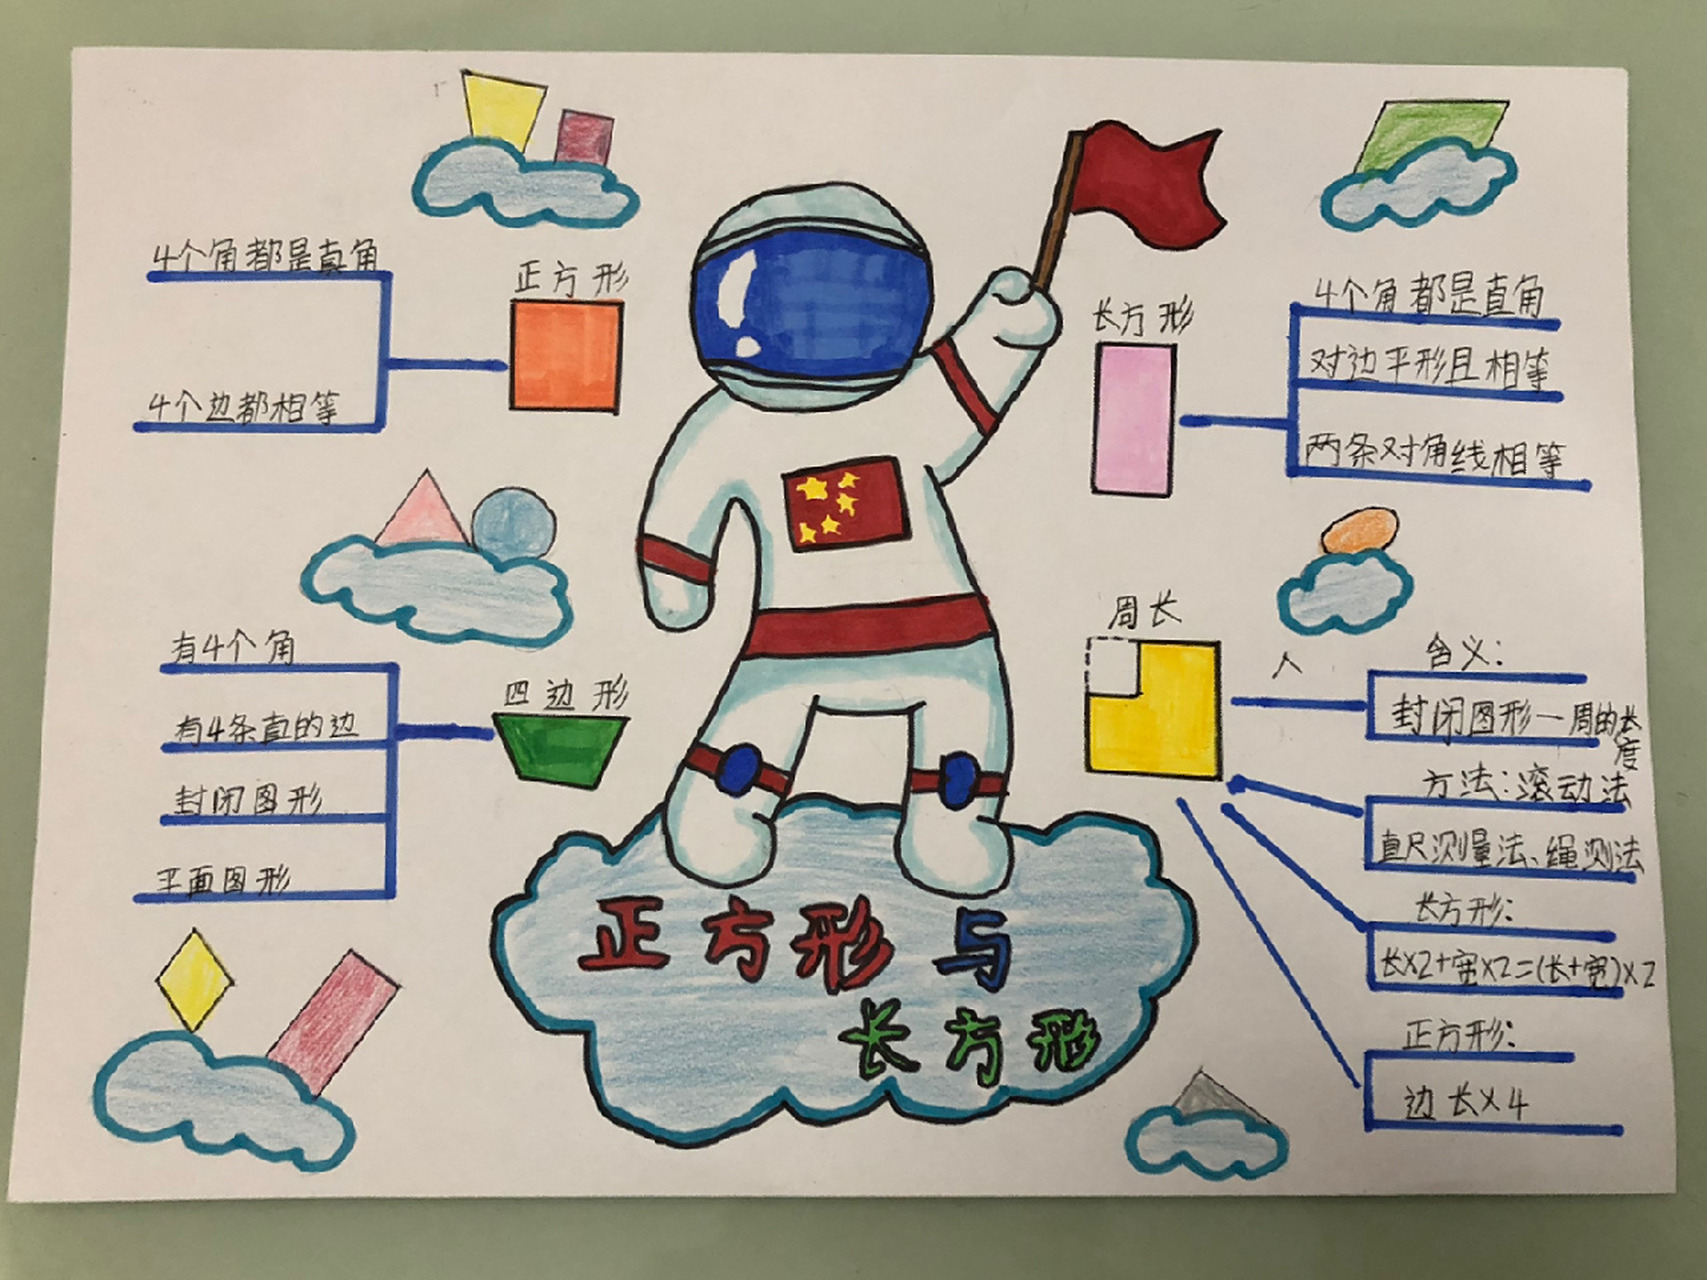 4个角都是直角
正方形
4个边都相等
长方形
4个角都是直角
对边平形且相等
两条对角线相等
有4个角
四边形
有4条直的边
封闭图形
平面图形
周长
人
含义:
封闭图形一周的长度
方法:滚动法
直尺测量法、绳测法
长方形:
长×2+宽×2=(长+宽)×2
正方形:
边长×4
正方形与
长方形